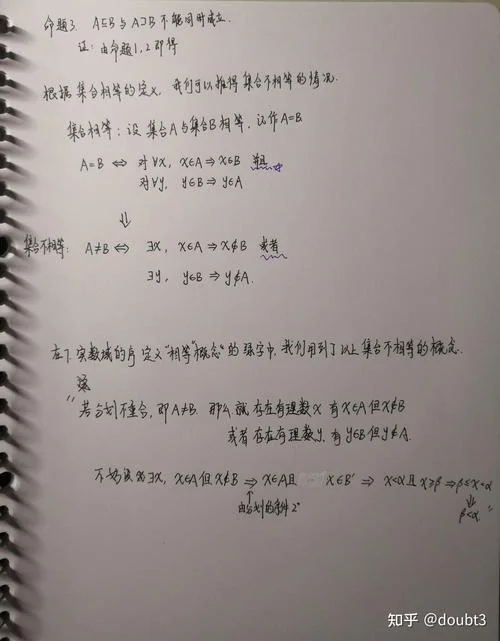 命题3. A⊆B与A⊃B不能同时成立.
证: 由命题1,2即得
根据集合相等的定义, 我们可以推得集合不相等的情况.
集合相等: 设集合A与集合B相等, 记作A=B
A=B ⇔ 对∀x, x∈A⇒x∈B 并且
对∀y, y∈B⇒y∈A
⇓
集合不相等: A≠B ⇔ ∃x, x∈A⇒x∉B 或者
∃y, y∈B⇒y∉A.
在7.实数域的序 定义“相等”概念"的 中, 我们用到了以上集合不相等的概念.
"若分划不重合, 即A≠B. 那么就存在有理数x 有x∈A但x∉B
或者存在有理数y, 有y∈B但y∉A.
不妨设 ∃x, x∈A但x∉B ⇒ x∈A且 x∈B' ⇒ x<α且x≥β ⇒β≤x<α
⇑ ⇓
由分划的条件2° β<α "
知乎 @doubt3